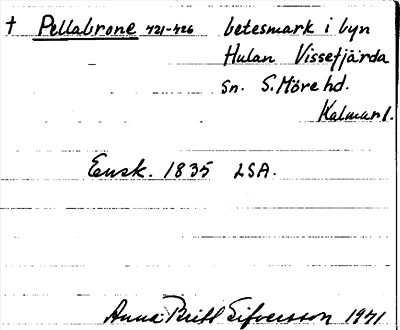 † Pellabrone 421-426 betesmark i byn
Hulan Vissefjärda
sn. S. Möre hd.
Kalmar l.
Ensk. 1835 LSA.
Anna Britt Sifversson 1971